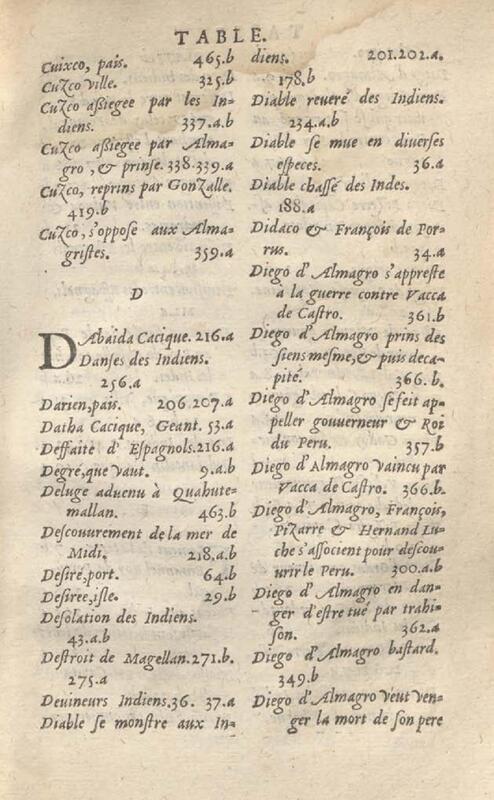 TABLE.
Cuixco, pais. 465.b
Cuzco ville. 325.b
Cuzco aßiegee par les In-
diens. 337.a.b
Cuzco aßiegee par Alma-
gro, & prinse. 338.339.a
Cuzco, reprins par Gonzalle.
419.b
Cuzco, s'oppose aux Alma-
gristes. 359.a
D
DAbaida Cacique. 216.a
Danses des Indiens.
256.a
Darien, pais. 206.207.a
Datha Cacique, Geant. 53.a
Deffaite d'Espagnols. 216.a
Degré, que vaut. 9.a.b
Deluge advenu à Quahute-
mallan. 463.b
Descouurement de la mer de
Midi. 218.a.b
Desiré, port. 64.b
Desiree, isle. 29.b
Desolation des Indiens.
43.a.b
Destroit de Magellan. 271.b.
275.a
Deuineurs Indiens. 36. 37.a
Diable se monstre aux In-
diens. 201.202.a.
178.b
Diable reueré des Indiens.
234.a.b
Diable se mue en diuerses
especes. 36.a
Diable chassé des Indes.
188.a
Didaco & François de Por-
rus. 34.a
Diego d'Almagro s'appreste
à la guerre contre Vacca
de Castro. 361.b
Diego d'Almagro prins des
siens mesme, & puis deca-
pité. 366.b.
Diego d'Almagro se feit ap-
peller gouuerneur & Roi
du Peru. 357.b
Diego d'Almagro vaincu par
Vacca de Castro. 366.b.
Diego d'Almagro, François,
Pizarre & Hernand Lu-
che s'associent pour descou-
urir le Peru. 300.a.b
Diego d'Almagro en dan-
ger d'estre tué par trahi-
son. 362.a
Diego d'Almagro bastard.
349.b
Diego d'Almagro veut ven-
ger la mort de son pere